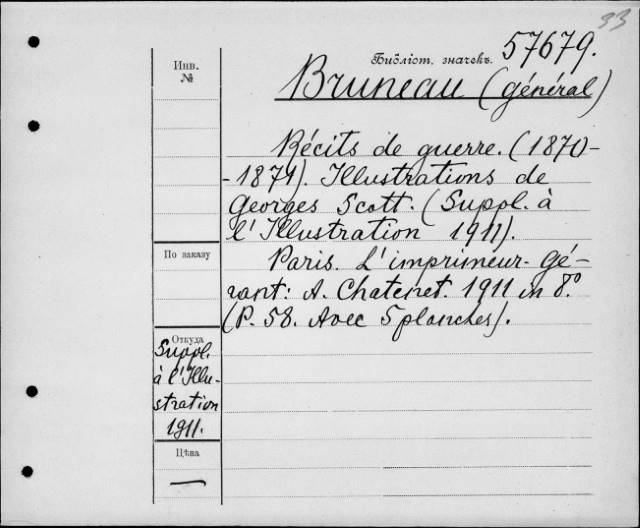 33
Библіот. значекъ. 57679.
Инв.
№
Bruneau (général)
Récits de guerre. (1870-
-1871). Illustrations de
Georges Scott. (Suppl. à
l'Illustration 1911).
Paris. L'imprimeur-gé-
rant: A. Chatenet. 1911 in 8°.
(P. 58. Avec 5 planches).
По заказу
Откуда
Suppl.
à l'Illu-
stration
1911.
Цѣна
—